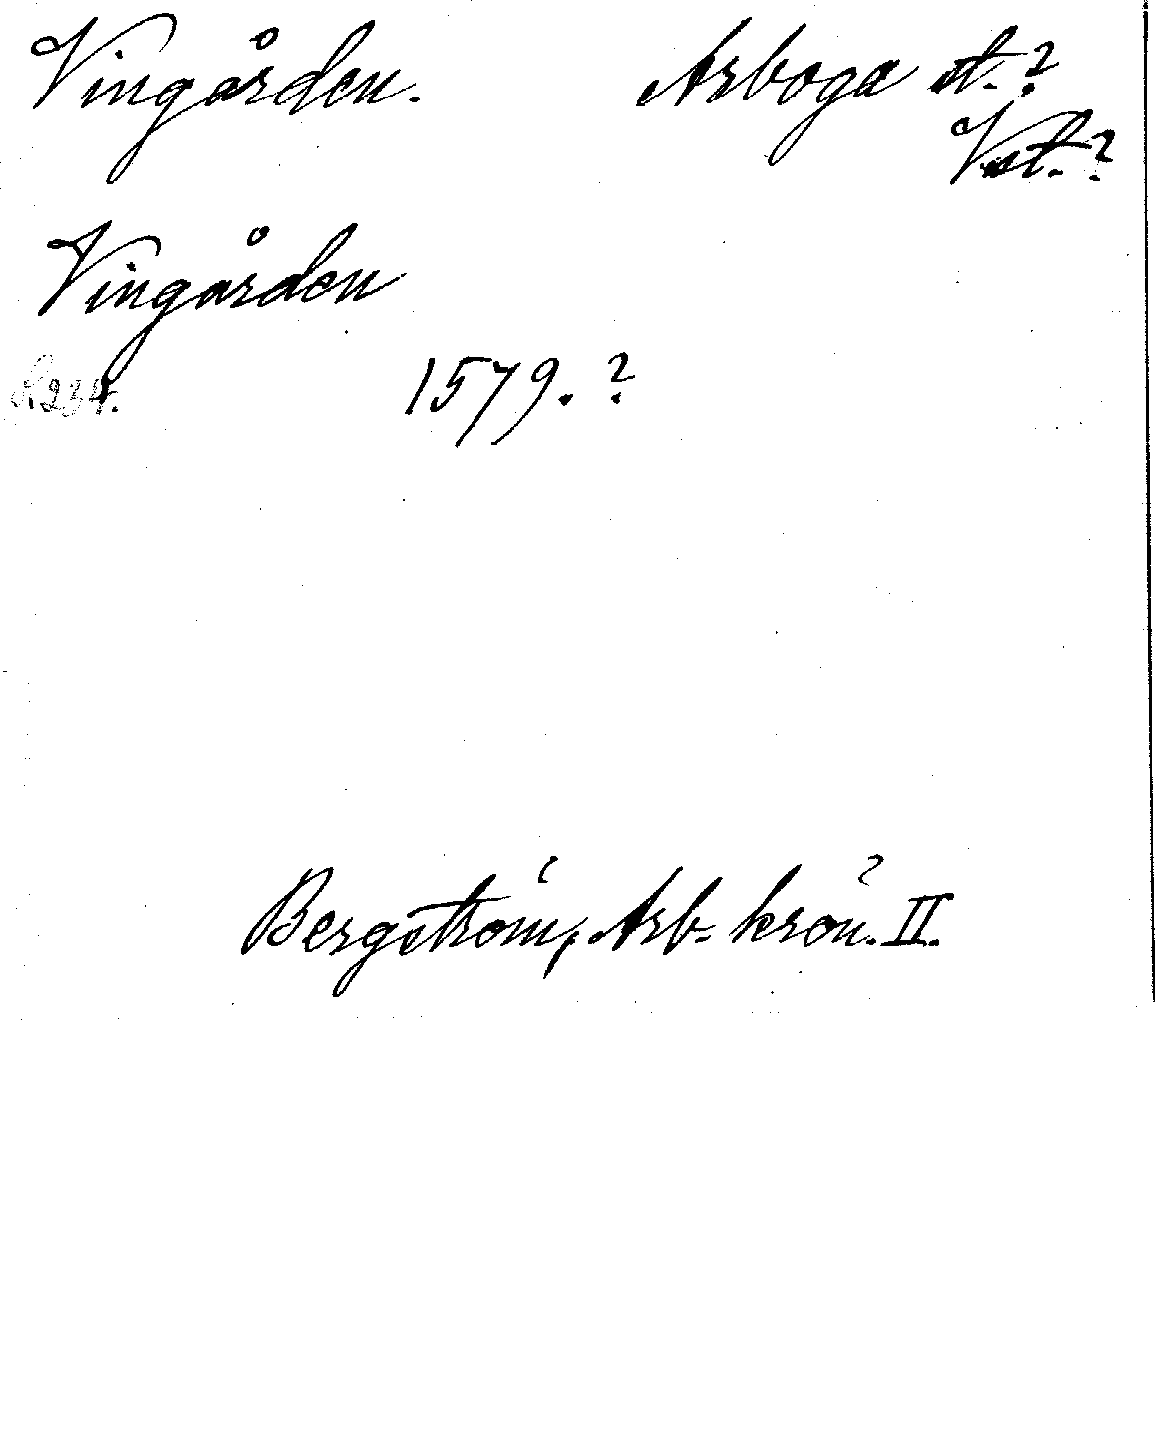 Vingården. Arboga st.?
Vst.?
Vingården
R234. 1579.?
Bergström, Arb. krön. II.